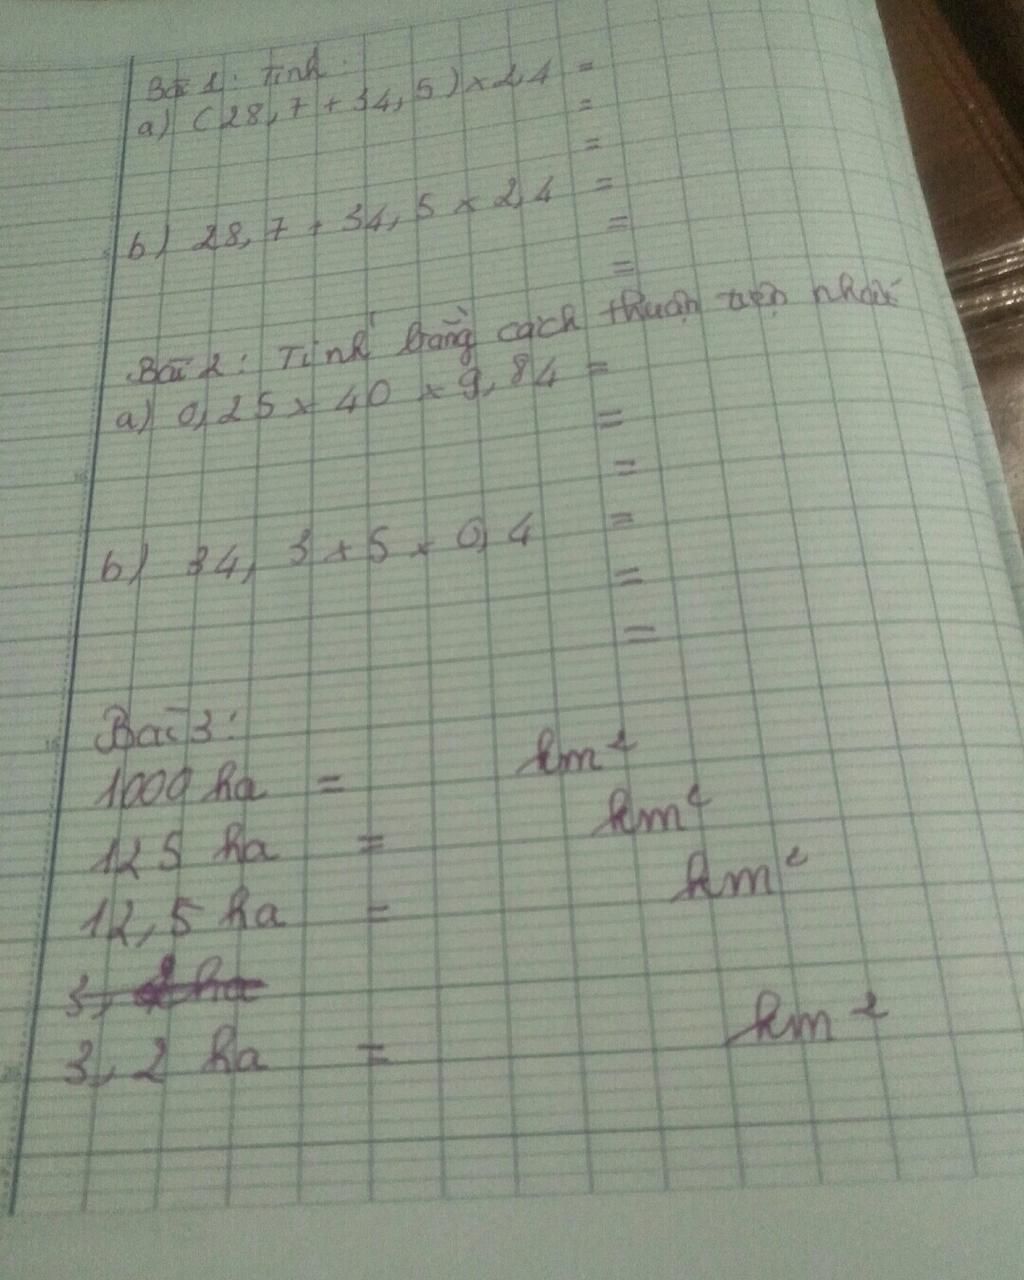 Bài 1: Tính.
a) (28,7 + 34,5) x 2,4 =
=
=
b) 28,7 + 34,5 x 2,4 =
=
=
Bài 2: Tính bằng cách thuận tiện nhất
a) 0,25 x 40 x 9,84 =
=
=
b) 34,3 x 5 x 0,4 =
=
=
Bài 3:
1000 ha = km²
125 ha = km²
12,5 ha = km²
3,2 ha = km²